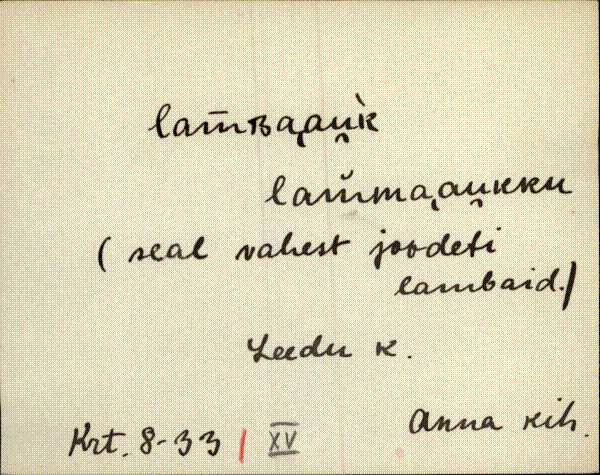 lam̄ʙa̭au̯k̀
lam̆ma̭au̯kku
( seal vahest joodeti
lambaid.)
Leedu k.
Anna kih.
Krt. 8-33 | XV